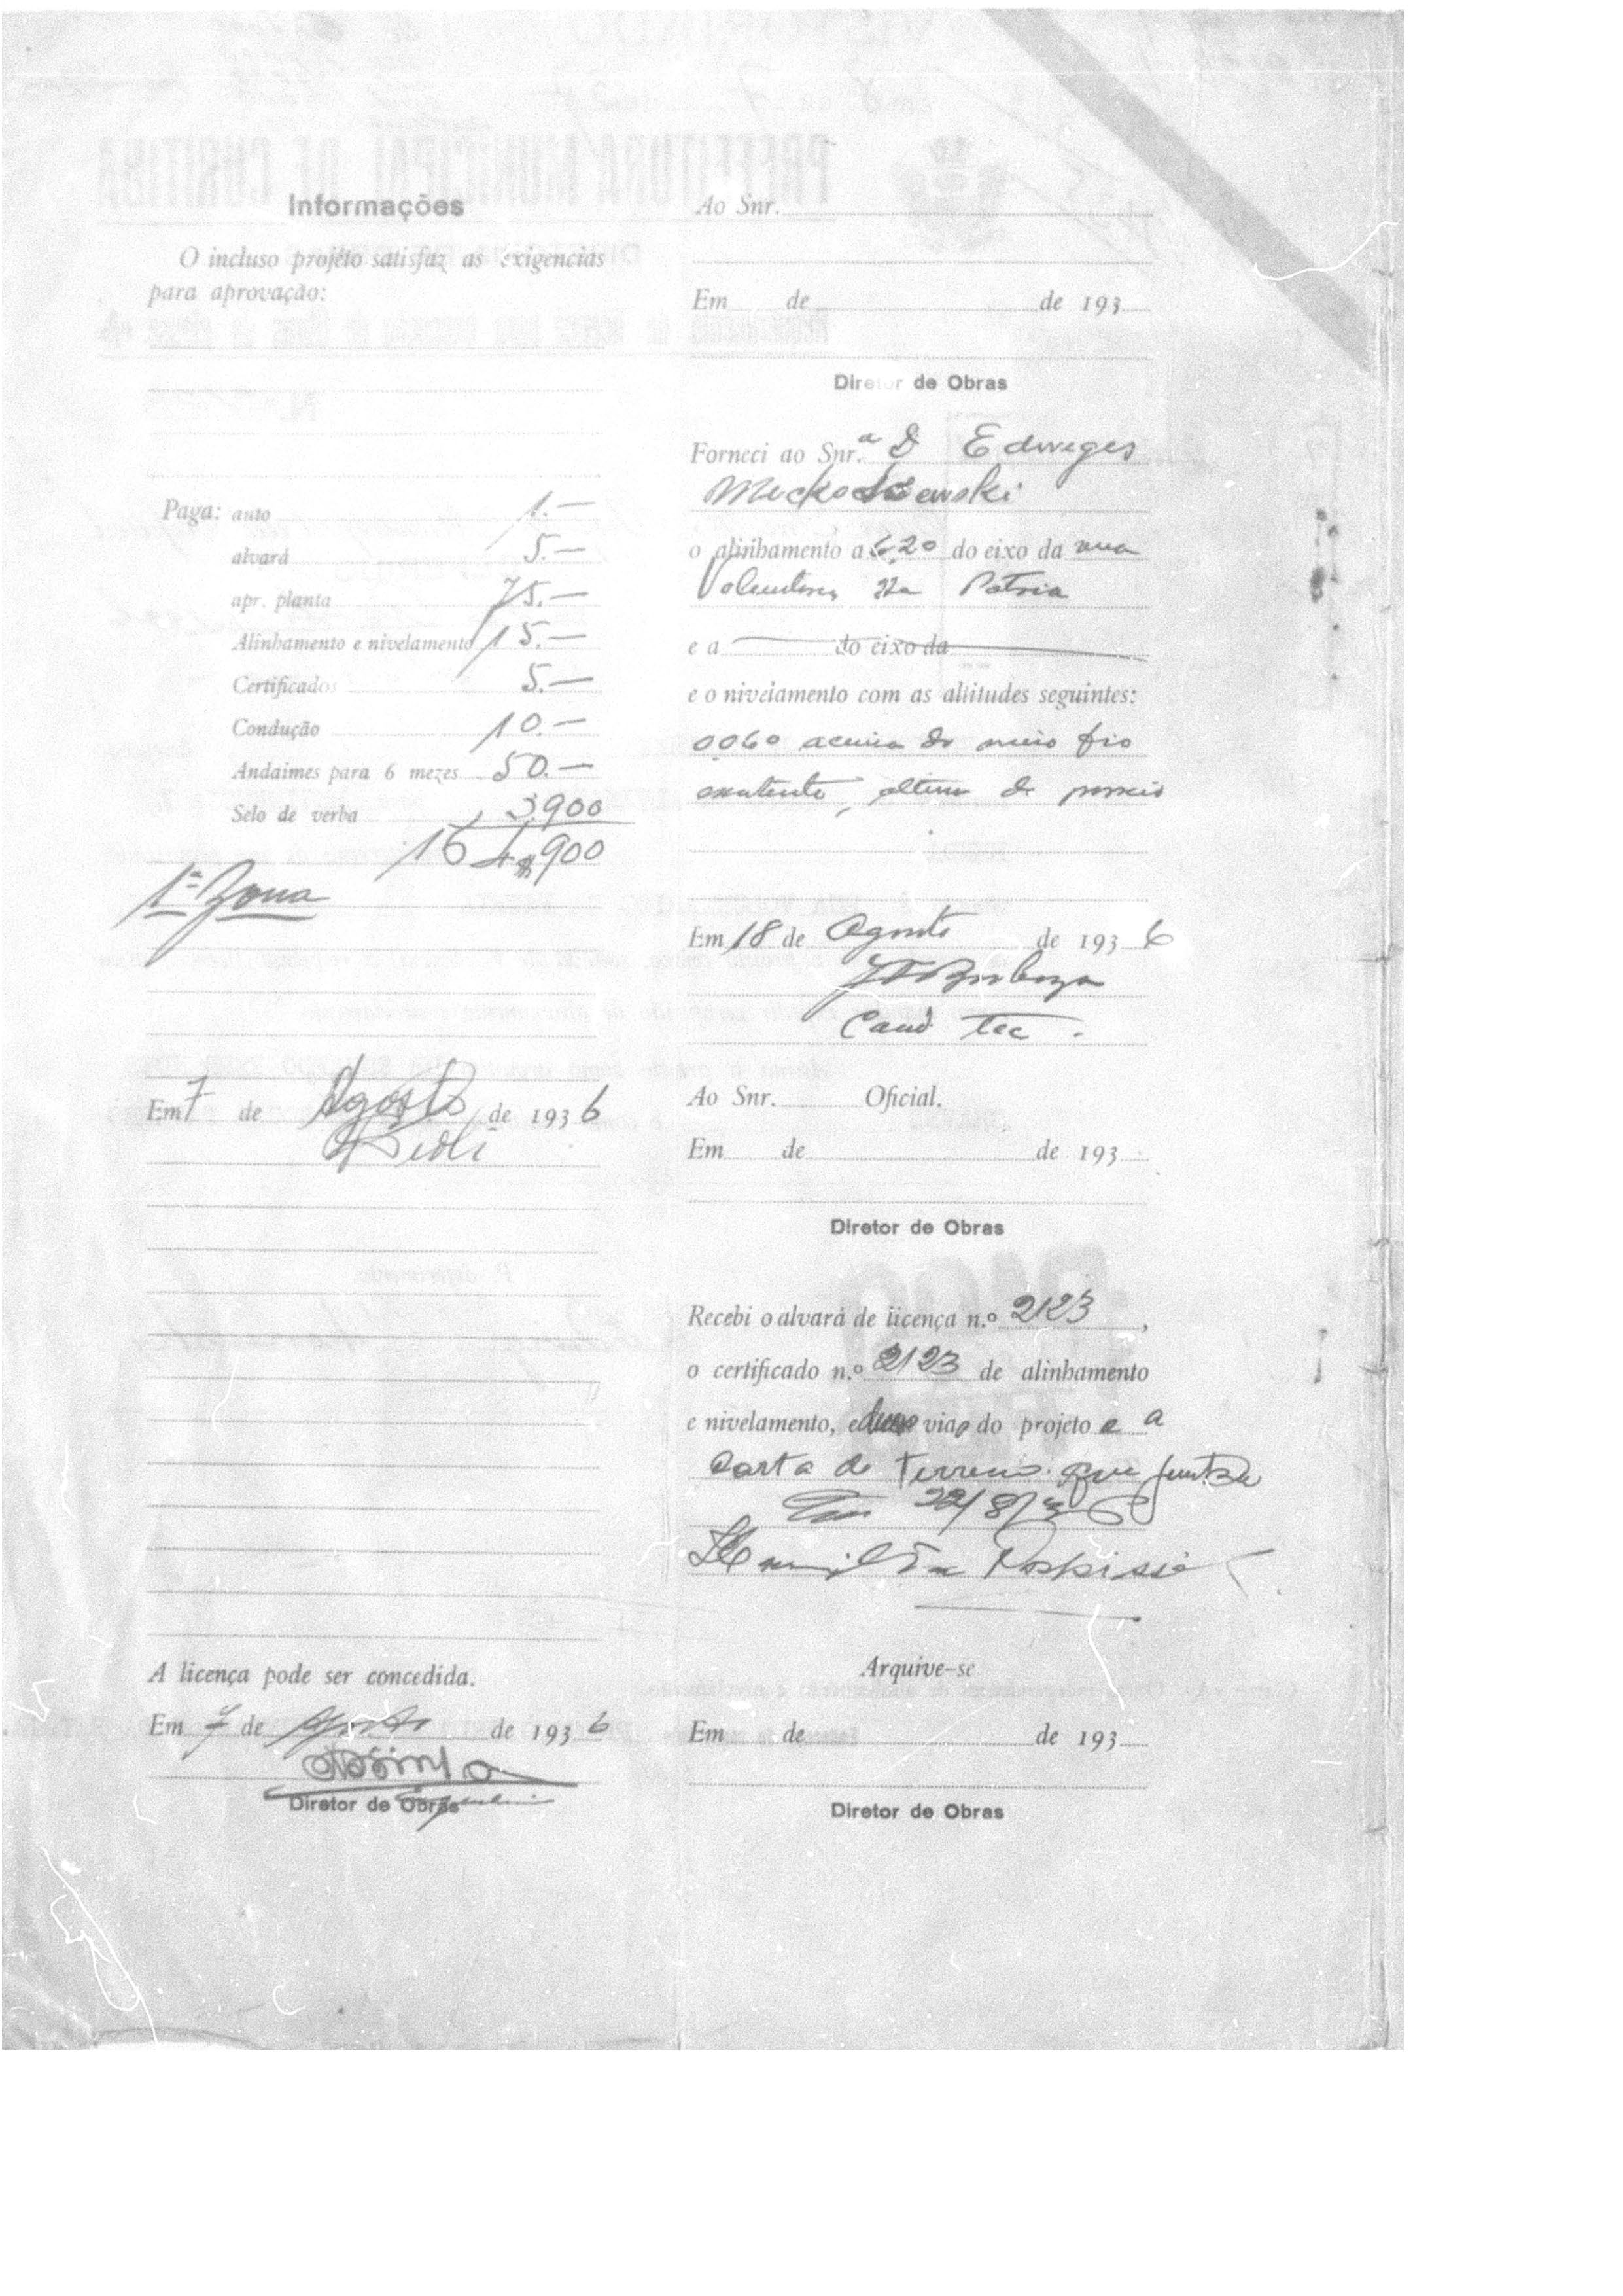 Informações
O incluso projéto satisfaz as exigencias
para aprovação:
Paga: auto 1.—
alvará 5.—
apr. planta 75.—
Alinhamento e nivelamento 15.—
Certificados 5.—
Condução 10.—
Andaimes para 6 mezes 50.—
Selo de verba 3.900
164$900
1ª Zona
Em 7 de Agosto de 1936
A licença pode ser concedida.
Em 7 de Agosto de 1936
Diretor de Obras
Ao Snr.
Em de de 193
Diretor de Obras
Forneci ao Snr.ª D Edwiges
o alinhamento a 6,20 do eixo da rua
Voluntarios da Patria
e a do eixo da
e o nivelamento com as altitudes seguintes:
0,060 acima do meio fio
existente, altura do passeio
Em 18 de Agosto de 1936
Cand. Tec.
Ao Snr. Oficial.
Em de de 193
Diretor de Obras
Recebi o alvará de licença n.º 2123,
o certificado n.º 2123 de alinhamento
e nivelamento, e duas vias do projeto e a
Carta de terreno que juntou
Em 22/8/36
Arquive-se
Em de de 193
Diretor de Obras